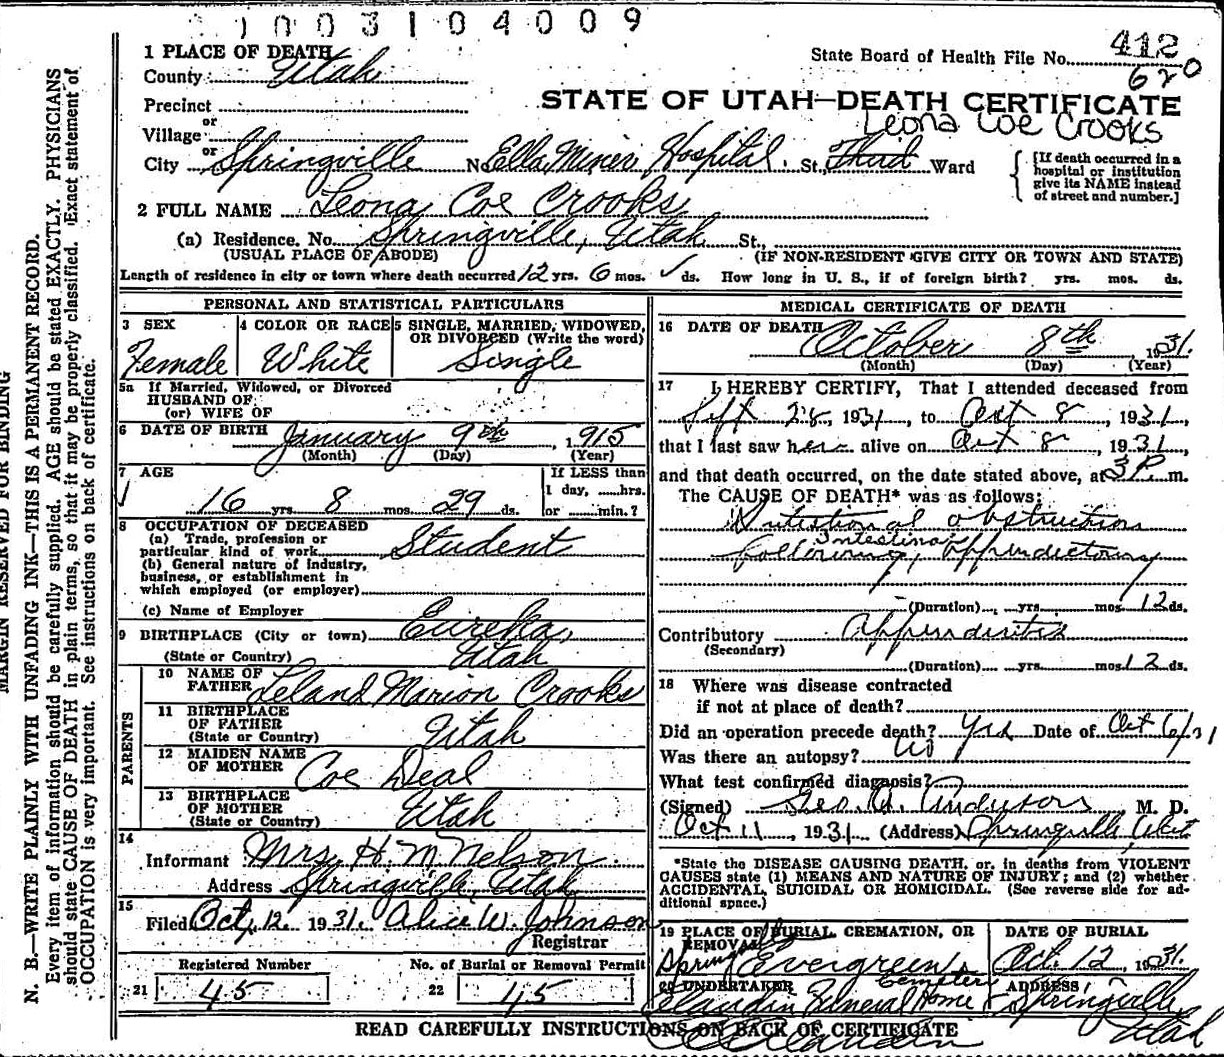 1003104009
1 PLACE OF DEATH
State Board of Health File No. 412
County Utah
620
Precinct
STATE OF UTAH—DEATH CERTIFICATE
or
Leona Coe Crooks
Village
or
City Springville No. Ella Miner Hospital. St., Third Ward
[If death occurred in a hospital or institution give its NAME instead of street and number.]
2 FULL NAME Leona Coe Crooks
(a) Residence. No. Springville, Utah St.,
(USUAL PLACE OF ABODE) (IF NON-RESIDENT GIVE CITY OR TOWN AND STATE)
Length of residence in city or town where death occurred 12 yrs. 6 mos. ✓ ds. How long in U. S., if of foreign birth? yrs. mos. ds.
PERSONAL AND STATISTICAL PARTICULARS
3 SEX
Female
4 COLOR OR RACE
White
5 SINGLE, MARRIED, WIDOWED, OR DIVORCED (Write the word)
Single
5a If Married, Widowed, or Divorced
HUSBAND OF
(or) WIFE OF
6 DATE OF BIRTH January 9th, 1915
(Month) (Day) (Year)
7 AGE
If LESS than
1 day, ......hrs.
or ......min.?
✓ 16 yrs. 8 mos. 29 ds.
8 OCCUPATION OF DECEASED
(a) Trade, profession or
particular kind of work Student
(b) General nature of industry,
business, or establishment in
which employed (or employer)
(c) Name of Employer
9 BIRTHPLACE (City or town) Eureka,
(State or Country) Utah
PARENTS
10 NAME OF
FATHER Leland Marion Crooks
11 BIRTHPLACE
OF FATHER
(State or Country) Utah
12 MAIDEN NAME
OF MOTHER Coe Deal
13 BIRTHPLACE
OF MOTHER
(State or Country) Utah
14
Informant Mrs H. M Nelson
Address Springville, Utah
15
Filed Oct, 12. 1931. Alice W. Johnson
Registrar
Registered Number No. of Burial or Removal Permit
21 45 22 45
MEDICAL CERTIFICATE OF DEATH
16 DATE OF DEATH October 8th 1931.
(Month) (Day) (Year)
17 I HEREBY CERTIFY, That I attended deceased from
Sept 28, 1931, to Oct 8, 1931,
that I last saw her alive on Oct 8, 1931,
and that death occurred, on the date stated above, at 3 P. m.
The CAUSE OF DEATH* was as follows:
Intestional obstruction
Intestinal
following, appendictomy
(Duration) yrs. mos. 12 ds.
Contributory Appendicitis
(Secondary)
(Duration) yrs. mos. 12 ds.
18 Where was disease contracted
if not at place of death?
Did an operation precede death? Yes Date of Oct 6/31
Was there an autopsy? no
What test confirmed diagnosis?
(Signed) Geo. A. M. D.
Oct 11, 1931 (Address) Springville, Utah
*State the DISEASE CAUSING DEATH, or, in deaths from VIOLENT
CAUSES state (1) MEANS AND NATURE OF INJURY; and (2) whether
ACCIDENTAL, SUICIDAL OR HOMICIDAL. (See reverse side for ad-
ditional space.)
19 PLACE OF BURIAL, CREMATION, OR
REMOVAL
Evergreen
Cemetery
DATE OF BURIAL
Oct. 12, 1931.
20 UNDERTAKER
Claudin Funeral Home
ADDRESS
Springville
Utah
READ CAREFULLY INSTRUCTIONS ON BACK OF CERTIFICATE
MARGIN RESERVED FOR BINDING
N. B.—WRITE PLAINLY WITH UNFADING INK—THIS IS A PERMANENT RECORD.
Every item of information should be carefully supplied. AGE should be stated EXACTLY. PHYSICIANS
should state CAUSE OF DEATH in plain terms, so that it may be properly classified. Exact statement of
OCCUPATION is very important. See instructions on back of certificate.